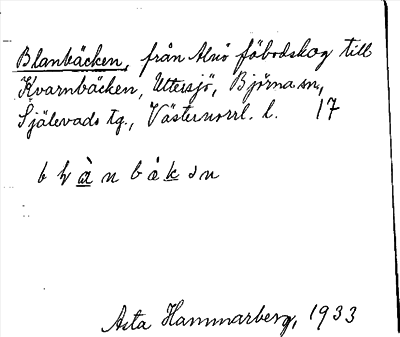 Blanbäcken, från Alnö fäbodskog till
Kvarnbäcken, Uttersjö, Björna sn,
Själevads tg., Västernorrl. l. 17
Asta Hammarberg, 1933